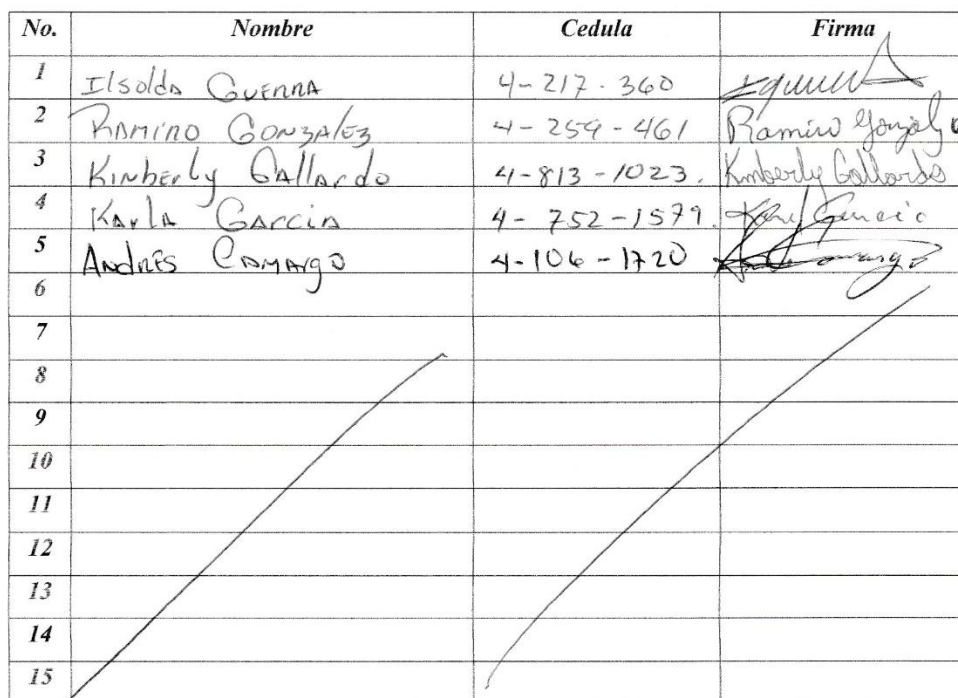 No. Nombre Cedula Firma
1 Ilsolda Guerra 4-217-360
2 Ramiro Gonzalez 4-259-461 Ramiro Gonzalez
3 Kinberly Gallardo 4-813-1023. Kimberly Gallardo
4 Karla Garcia 4-752-1579. Garcia
5 Andres Camargo 4-106-1720 Camargo
6
7
8
9
10
11
12
13
14
15